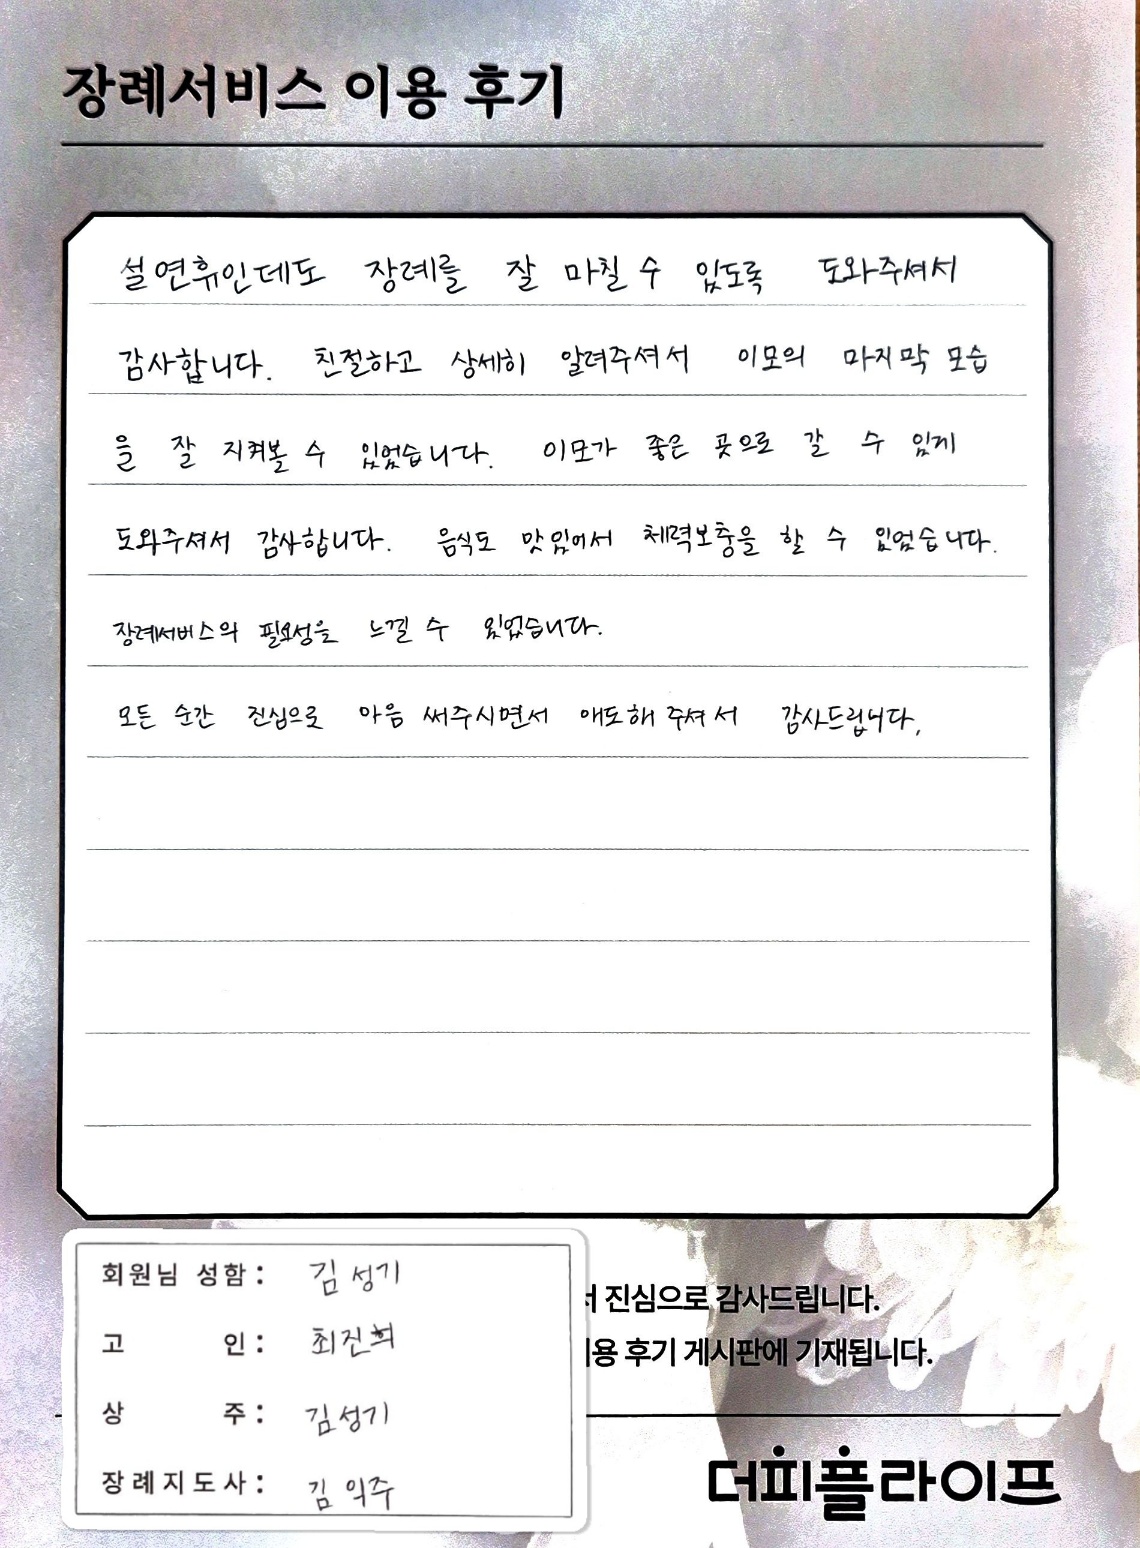 장례서비스 이용 후기
설연휴인데도 장례를 잘 마칠 수 있도록 도와주셔서
감사합니다. 친절하고 상세히 알려주셔서 이모의 마지막 모습
을 잘 지켜볼 수 있었습니다. 이모가 좋은 곳으로 갈 수 있게
도와주셔서 감사합니다. 음식도 맛있어서 체력보충을 할 수 있었습니다.
장례서비스의 필요성을 느낄 수 있었습니다.
모든 순간 진심으로 마음 써주시면서 애도해 주셔서 감사드립니다,
회원님 성함: 김성기
고 인: 최진희
상 주: 김성기
장례지도사: 김익주
서 진심으로 감사드립니다.
이용 후기 게시판에 기재됩니다.
더피플라이프